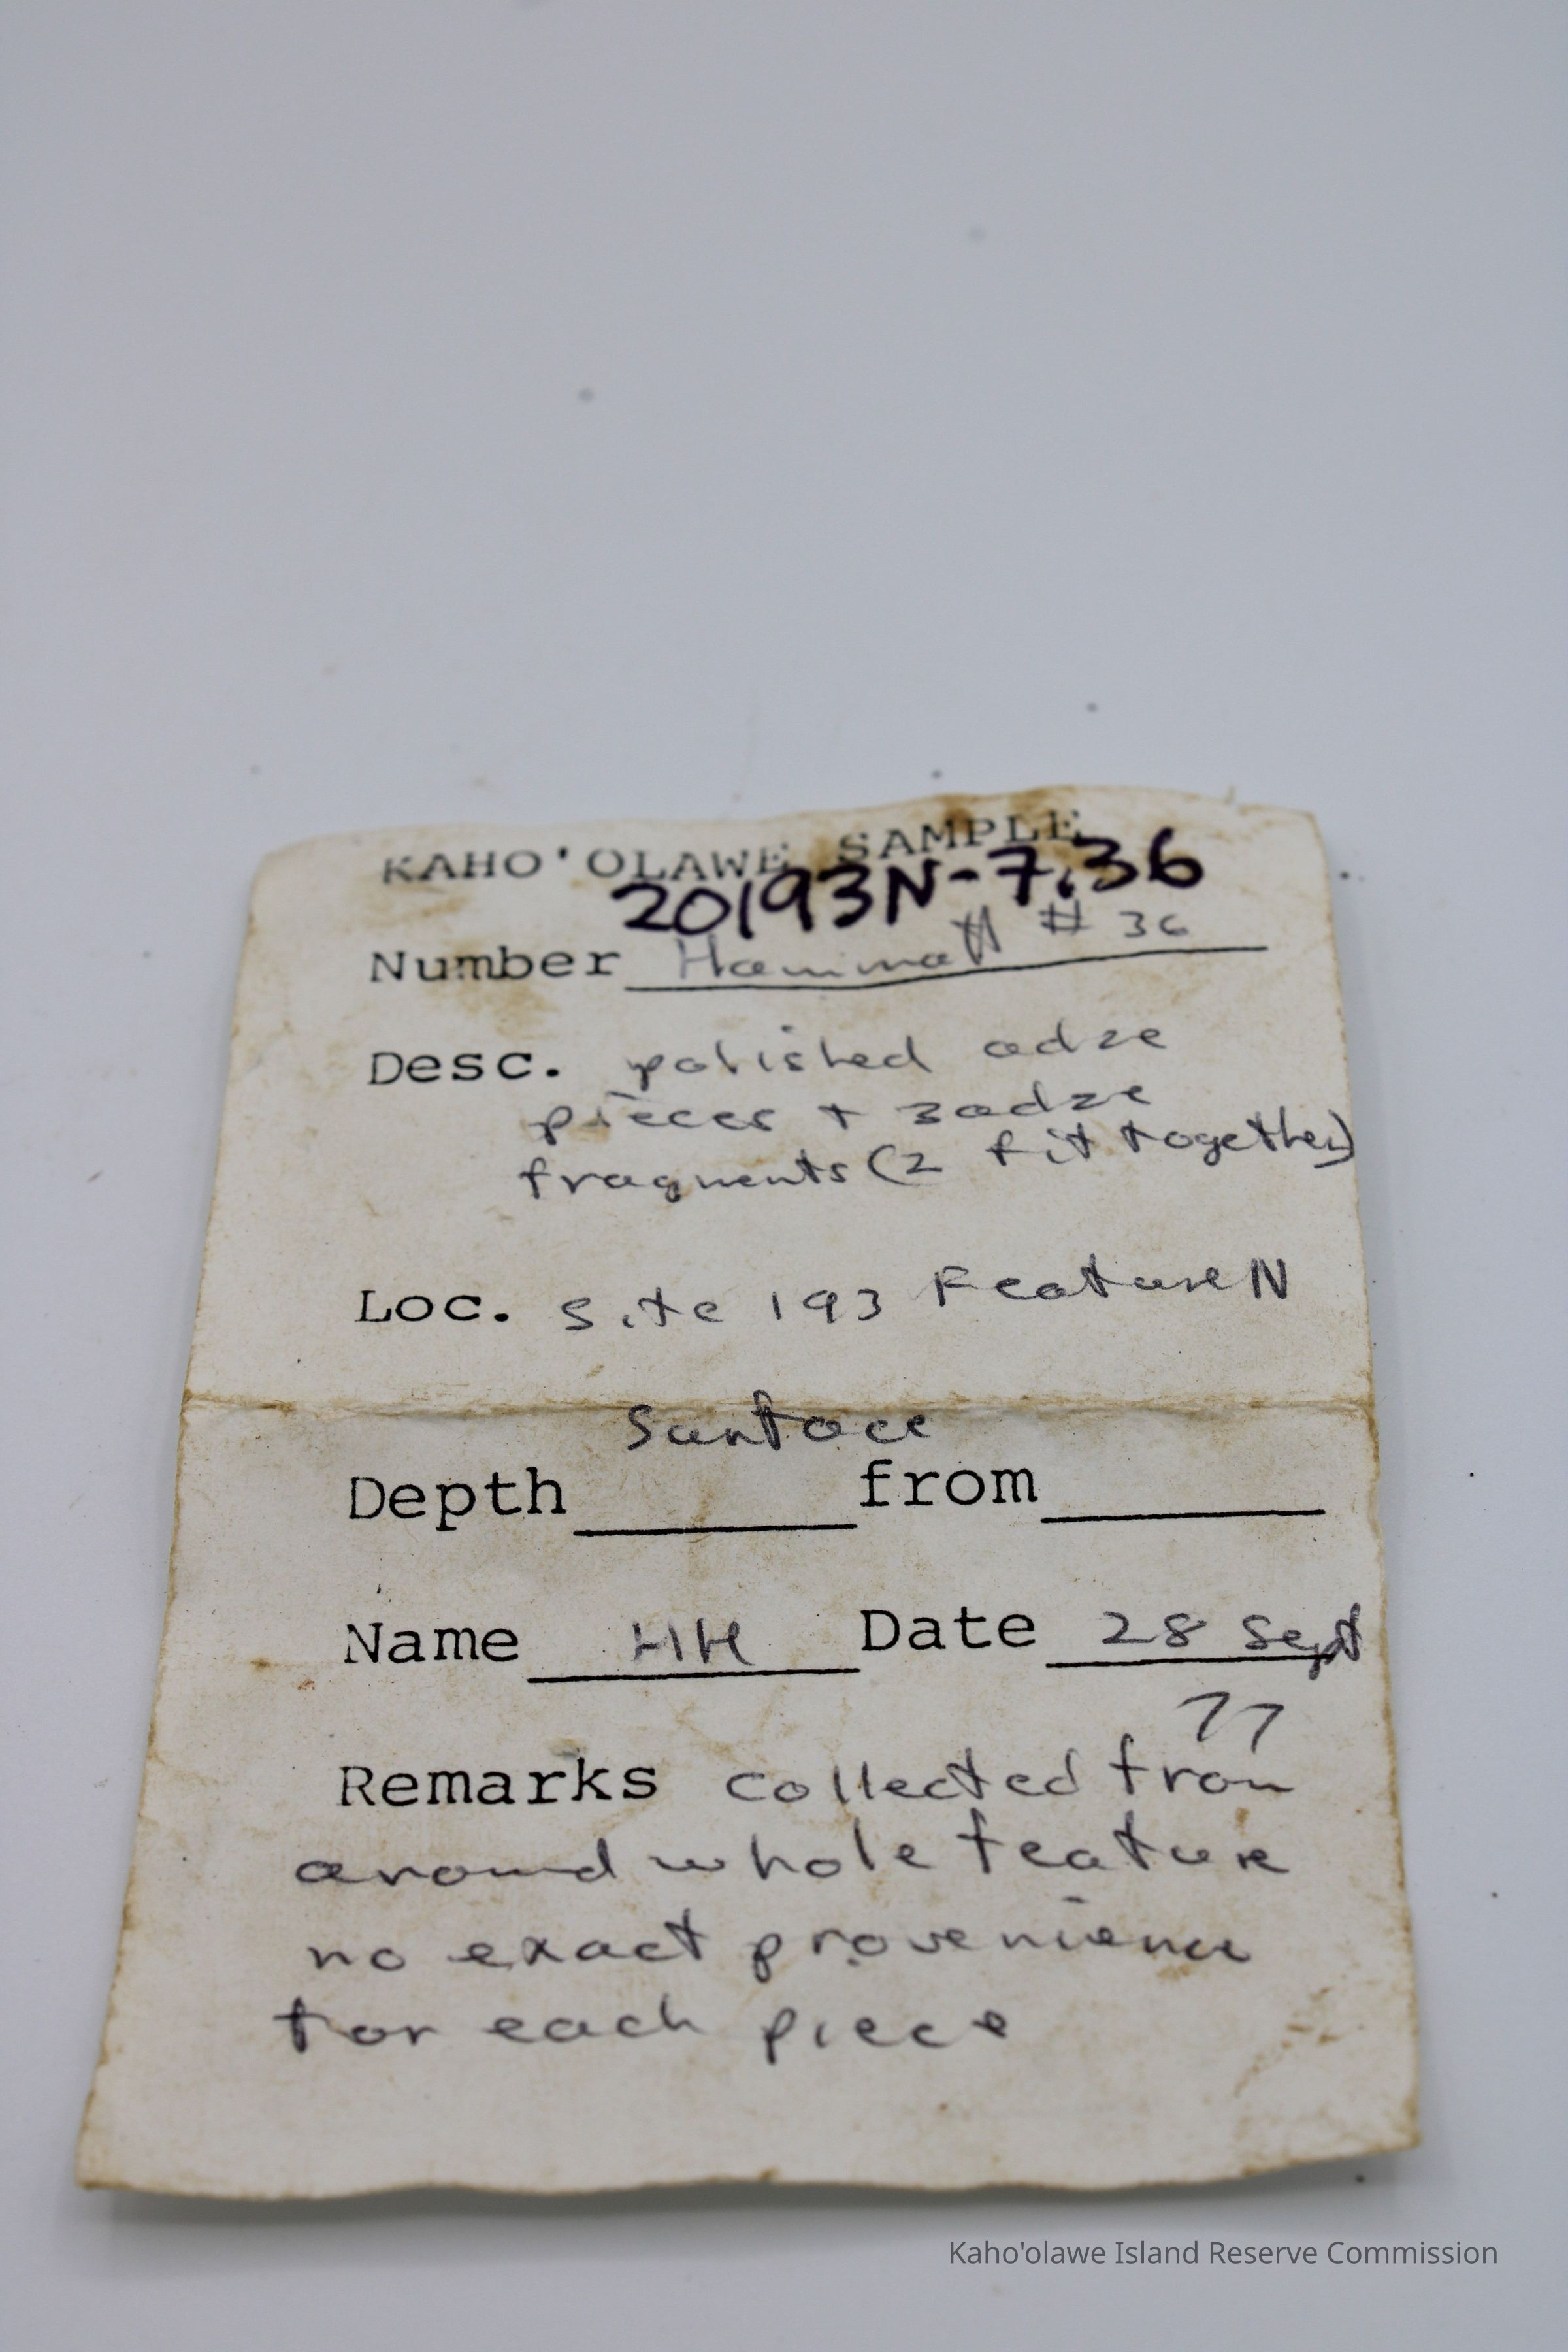 KAHO'OLAWE SAMPLE
20193N-7.36
Number Hammatt # 36
Desc. polished adze
pieces + 3 adze
fragments (2 fit together)
Loc. Site 193 Feature N
Surface
Depth from
Name HH Date 28 Sept
77
Remarks collected from
around whole feature
no exact provenience
for each piece
Kaho'olawe Island Reserve Commission